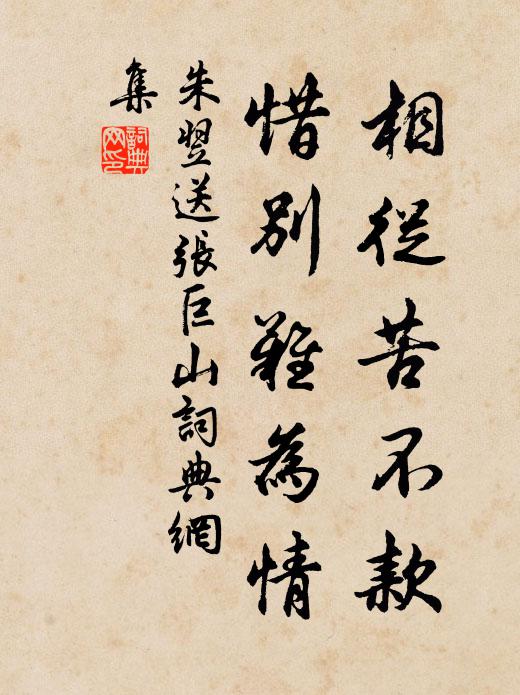 相從苦不款
惜別難為情
朱翌送張巨山詞典網
集
詞典
网印